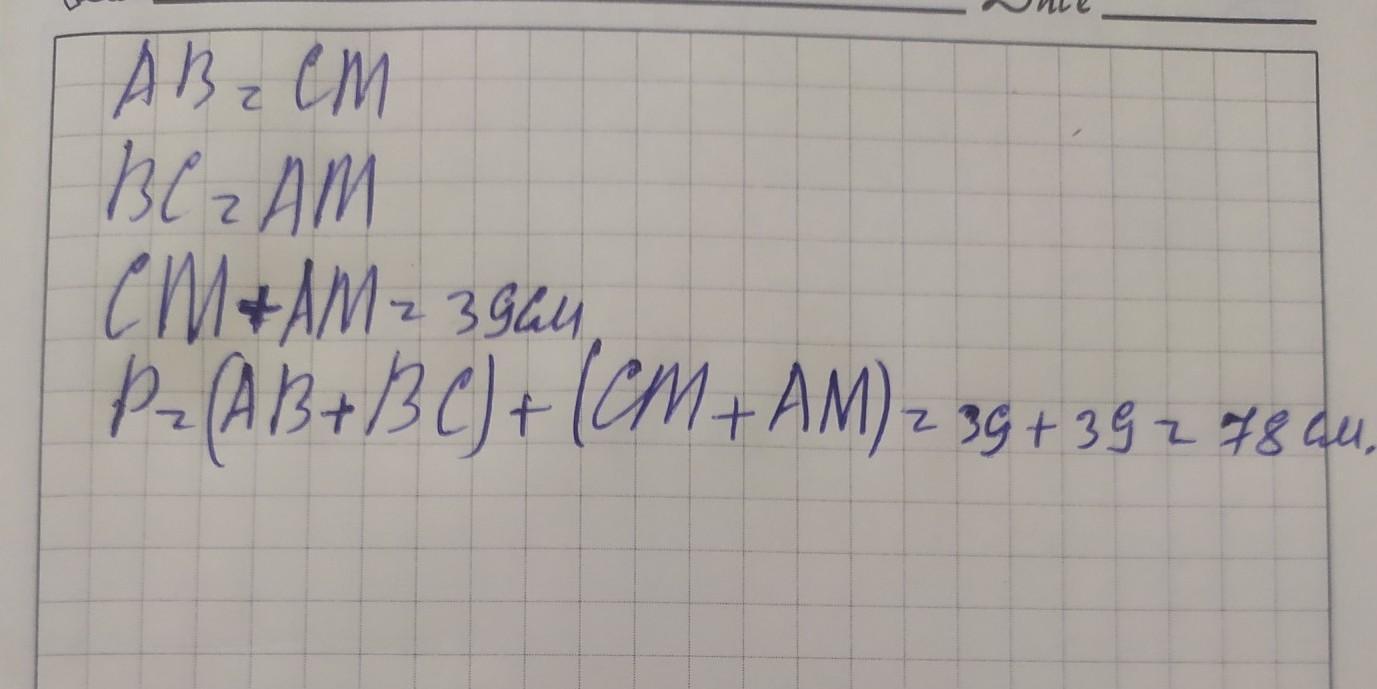 Date
AB = CM
BC = AM
CM + AM = 39см
P = (AB + BC) + (CM + AM) = 39 + 39 = 78 см.